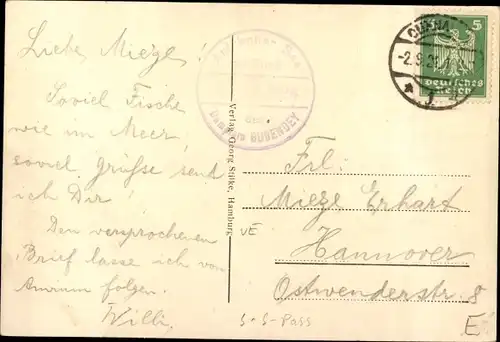 Liebe Mieze!
Soviel Fische
wie im Meer,
soviel Grüsse send
ich Dir!
Den versprochenen
Brief lasse ich von
Amrum folgen.
Willi
Verlag Georg Stilke, Hamburg
Dampfers BUBENDEY
CUXHA
-2.9.2
5
Deutsches
Reich
Frl.
Mieze Erhart
VE
Hannover
Ostwenderstr. 8
S+S-Pass
E